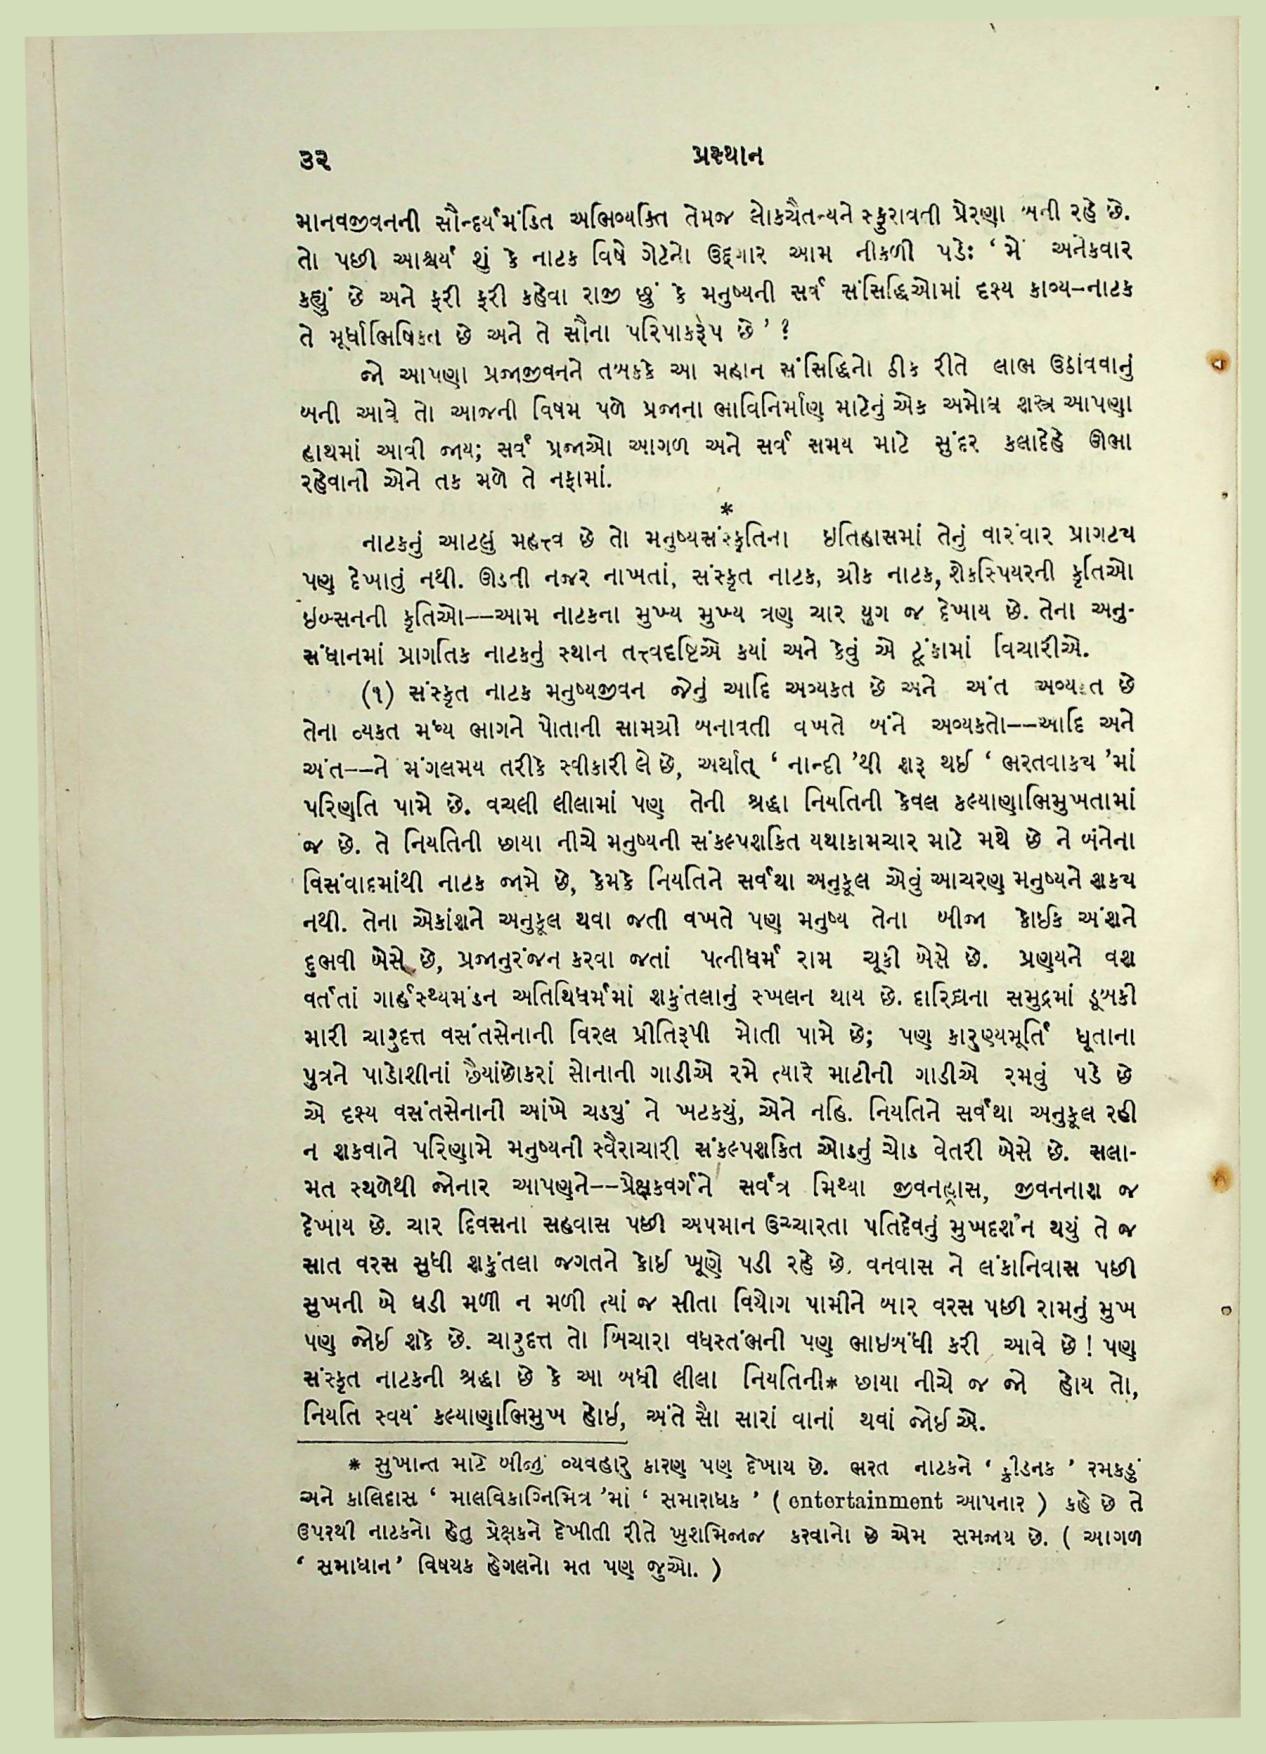 ૩૨ પ્રસ્થાન
માનવજીવનની સૌન્દર્યમંડિત અભિવ્યક્તિ તેમજ લોકચૈતન્યને સ્ફુરાવતી પ્રેરણા બની રહે છે.
તો પછી આશ્ચર્ય શું કે નાટક વિષે ગેટેનો ઉદ્દગાર આમ નીકળી પડેઃ ‘ મેં અનેકવાર
કહ્યું છે અને ફરી ફરી કહેવા રાજી છું કે મનુષ્યની સર્વ સંસિદ્ધિઓમાં દૃશ્ય કાવ્ય–નાટક
તે મૂર્ધાભિષિકત છે અને તે સૌના પરિપાકરૂપ છે ’ ?
જો આપણા પ્રજાજીવનને તબક્કે આ મહાન સંસિદ્ધિનો ઠીક રીતે લાભ ઉઠાંવવાનું
બની આવે તો આજની વિષમ પળે પ્રજાના ભાવિનિર્માણ માટેનું એક અમોઘ શસ્ત્ર આપણા
હાથમાં આવી જાય; સર્વ પ્રજાઓ આગળ અને સર્વ સમય માટે સુંદર કલાદેહે ઊભા
રહેવાની એને તક મળે તે નફામાં.
*
નાટકનું આટલું મહત્ત્વ છે તો મનુષ્યસંસ્કૃતિના ઇતિહાસમાં તેનું વારંવાર પ્રાગટ્ય
પણ દેખાતું નથી. ઊડતી નજર નાખતાં, સંસ્કૃત નાટક, ગ્રીક નાટક, શેકસ્પિયરની કૃતિઓ
ઇબ્સનની કૃતિઓ––આમ નાટકના મુખ્ય મુખ્ય ત્રણ ચાર યુગ જ દેખાય છે. તેના અનુ-
સંધાનમાં પ્રાગતિક નાટકનું સ્થાન તત્ત્વદૃષ્ટિએ કયાં અને કેવું એ ટૂંકામાં વિચારીએ.
(૧) સંસ્કૃત નાટક મનુષ્યજીવન જેનું આદિ અવ્યકત છે અને અંત અવ્યકત છે
તેના વ્યકત મધ્ય ભાગને પોતાની સામગ્રી બનાવતી વખતે બંને અવ્યકતો––આદિ અને
અંત––ને મંગલમય તરીકે સ્વીકારી લે છે, અર્થાત્ ‘ નાન્દી ’થી શરૂ થઈ ‘ ભરતવાકય ’માં
પરિણતિ પામે છે. વચલી લીલામાં પણ તેની શ્રદ્ધા નિયતિની કેવલ કલ્યાણાભિમુખતામાં
જ છે. તે નિયતિની છાયા નીચે મનુષ્યની સંકલ્પશકિત યથાકામચાર માટે મથે છે ને બંનેના
વિસંવાદમાંથી નાટક જામે છે, કેમકે નિયતિને સર્વથા અનુકૂલ એવું આચરણ મનુષ્યને શકય
નથી. તેના એકાંશને અનુકૂલ થવા જતી વખતે પણ મનુષ્ય તેના બીજા કોઈક અંશને
દુભવી બેસે છે, પ્રજાનુરંજન કરવા જતાં પત્નીધર્મ રામ ચૂકી બેસે છે. પ્રણયને વશ
વર્તતાં ગાર્હસ્થ્યમંડન અતિથિધર્મમાં શકુંતલાનું સ્ખલન થાય છે. દારિદ્યના સમુદ્રમાં ડૂબકી
મારી ચારુદત્ત વસંતસેનાની વિરલ પ્રીતિરૂપી મોતી પામે છે; પણ કારુણ્યમૂર્તિ ધૂતાના
પુત્રને પાડોશીનાં છૈયાંછોકરાં સોનાની ગાડીએ રમે ત્યારે માટીની ગાડીએ રમવું પડે છે
એ દૃશ્ય વસંતસેનાની આંખે ચડ્યું ને ખટકયું, એને નહિ. નિયતિને સર્વથા અનુકૂલ રહી
ન શકવાને પરિણામે મનુષ્યની સ્વૈરાચારી સંકલ્પશકિત ઓડનું ચોડ વેતરી બેસે છે. સલા-
મત સ્થળેથી જોનાર આપણને––પ્રેક્ષકવર્ગને સર્વત્ર મિથ્યા જીવનહ્રાસ, જીવનનાશ જ
દેખાય છે. ચાર દિવસના સહવાસ પછી અપમાન ઉચ્ચારતા પતિદેવનું મુખદર્શન થયું તે જ
સાત વરસ સુધી શકુંતલા જગતને કોઈ ખૂણે પડી રહે છે. વનવાસ ને લંકાનિવાસ પછી
સુખની બે ઘડી મળી ન મળી ત્યાં જ સીતા વિયોગ પામીને બાર વરસ પછી રામનું મુખ
પણ જોઈ શકે છે. ચારુદત્ત તો બિચારા વધસ્તંભની પણ ભાઇબંધી કરી આવે છે ! પણ
સંસ્કૃત નાટકની શ્રદ્ધા છે કે આ બધી લીલા નિયતિની* છાયા નીચે જ જો હોય તો,
નિયતિ સ્વયં કલ્યાણાભિમુખ હોઇ, અંતે સૌ સારાં વાનાં થવાં જોઈએ.
* સુખાન્ત માટે બીજું વ્યવહારુ કારણ પણ દેખાય છે. ભરત નાટકને ‘ ક્રીડનક ’ રમકડું
અને કાલિદાસ ‘ માલવિકાગ્નિમિત્ર ’માં ‘ સમારાધક ’ ( entertainment આપનાર ) કહે છે તે
ઉપરથી નાટકનો હેતુ પ્રેક્ષકને દેખીતી રીતે ખુશમિજાજ કરવાનો છે એમ સમજાય છે. ( આગળ
‘ સમાધાન ’ વિષયક હેગલનો મત પણ જુઓ. )